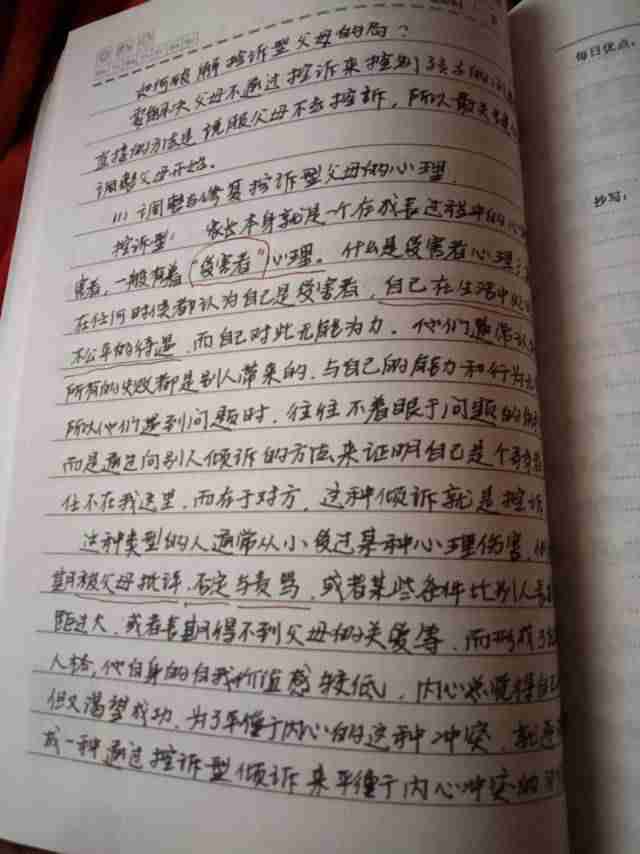 如何破解控诉型父母的局？
要解决父母不通过控诉来控制孩子的
直接的方法是说服父母不去控诉，所以最关键
调整父母开始。
(1) 调整与修复控诉型父母的心理
控诉型：家长本身就是一个在成长过程中的心
害者，一般有着“受害者”心理。什么是受害者心理：
在任何时候都认为自己是受害者，自己在生活中
不公平的待遇，而自己对此无能为力。他们通常认
所有的失败都是别人带来的，与自己的能力和行为无
所以他们遇到问题时，往往不着眼于问题的解
而是通过向别人倾诉的方法来证明自己是个
任不在我这里，而在于对方，这种倾诉就是控诉
这种类型的人通常从小受过某种心理伤害，
期被父母批评、否定与责骂，或者某些条件比别人
距过大，或者长期得不到父母的关爱等，而形成了
人格，他自身的自我价值感较低，内心总觉得自己
但又渴望成功，为了平衡于内心的这种冲突，就
成一种通过控诉型倾诉来平衡于内心冲突的
每日优点：
抄写：